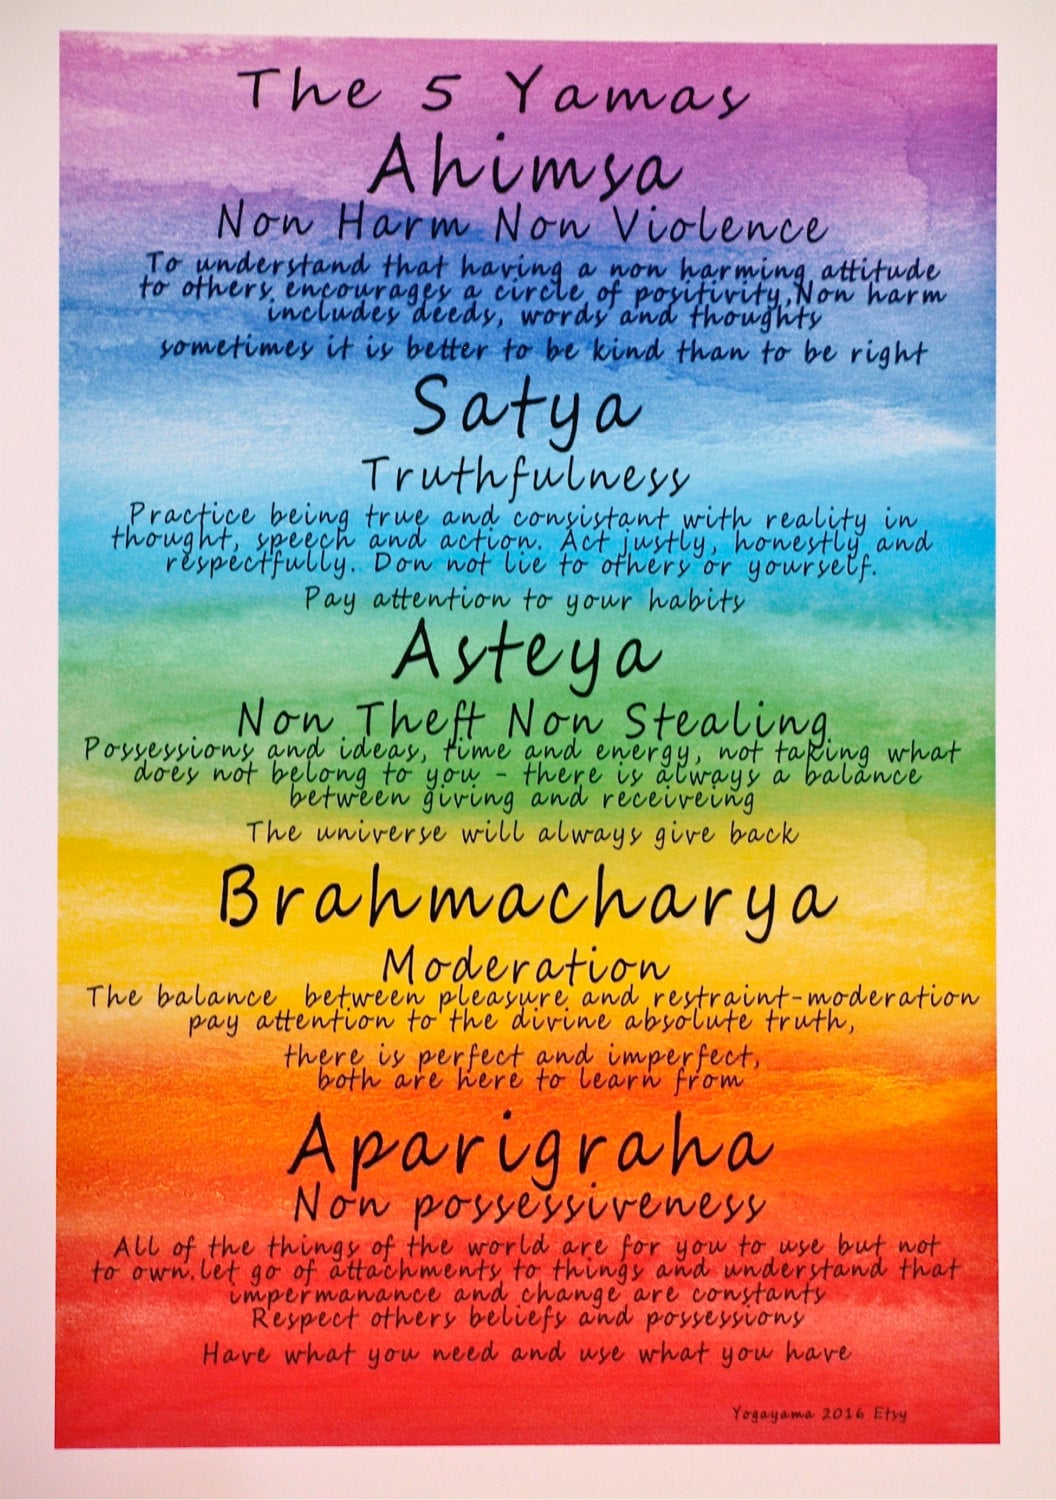 The 5 Yamas
Ahimsa
Non Harm Non Violence
To understand that having a non harming attitude
to others encourages a circle of positivity,Non harm
includes deeds, words and thoughts
sometimes it is better to be kind than to be right
Satya
Truthfulness
Practice being true and consistant with reality in
thought, speech and action. Act justly, honestly and
respectfully. Don not lie to others or yourself.
Pay attention to your habits
Asteya
Non Theft Non Stealing
Possessions and ideas, time and energy, not taking what
does not belong to you - there is always a balance
between giving and receiveing
The universe will always give back
Brahmacharya
Moderation
The balance between pleasure and restraint-moderation
pay attention to the divine absolute truth,
there is perfect and imperfect,
both are here to learn from
Aparigraha
Non possessiveness
All of the things of the world are for you to use but not
to own.let go of attachments to things and understand that
impermanance and change are constants
Respect others beliefs and possessions
Have what you need and use what you have
Yogayama 2016 Etsy